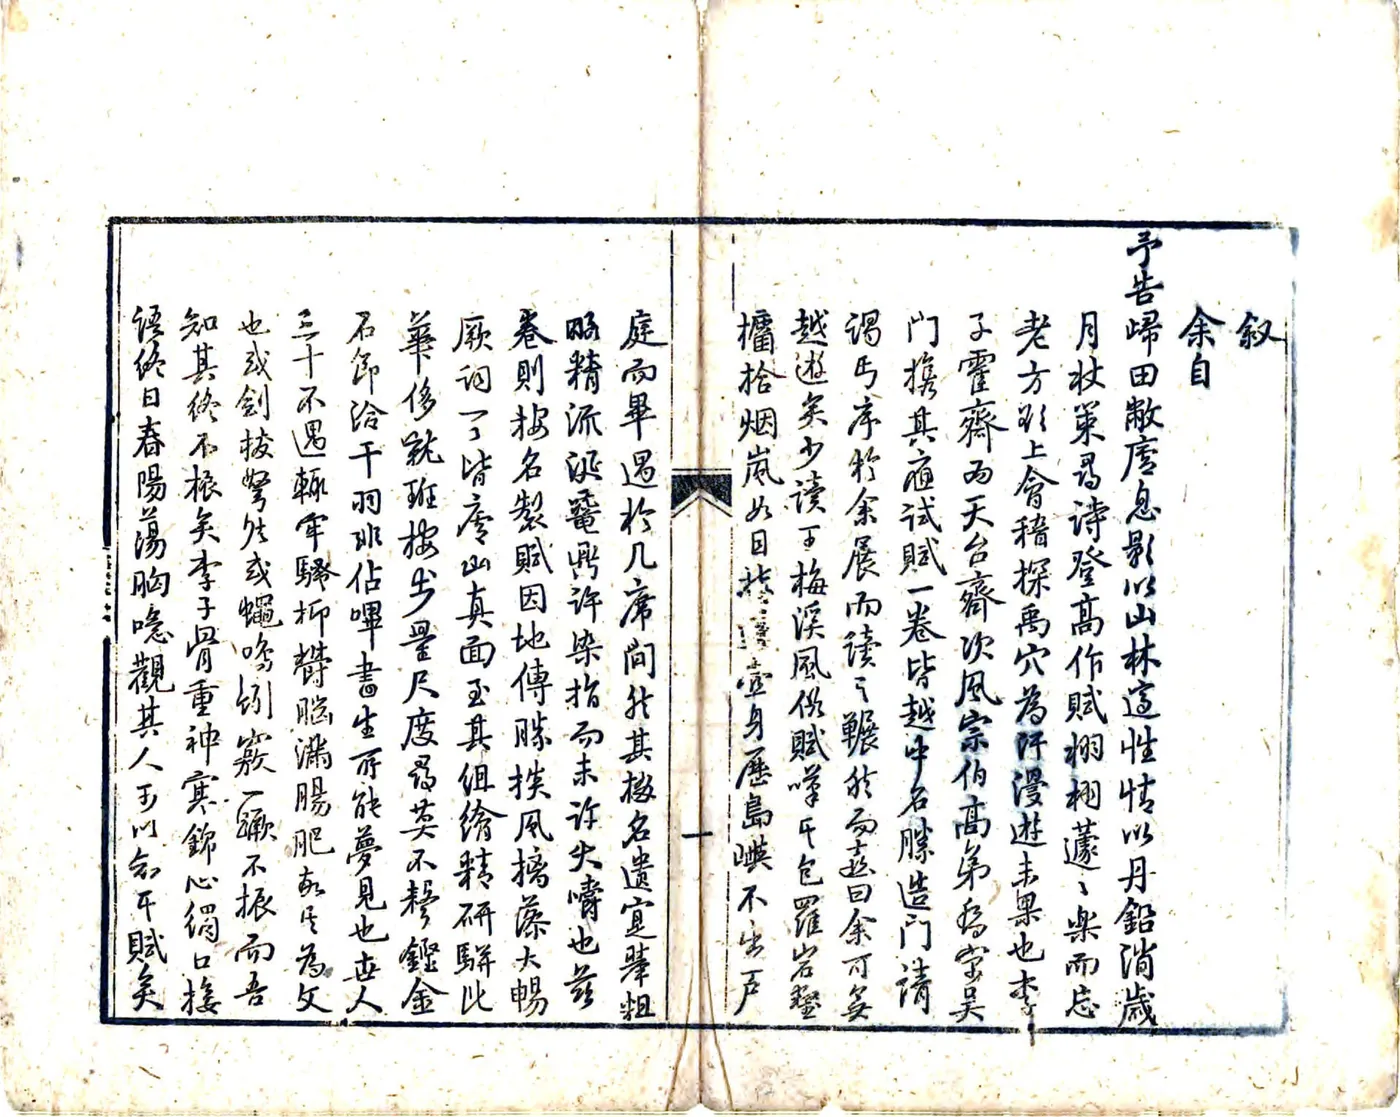 叙
余自
予告歸田敝廬息影以山林適性情以丹鉛消歲
月杖策尋詩登高作賦栩栩蘧〻樂而忘
老方欲上會稽探禹穴為汗漫遊未果也李
子霍齋而天台齋次風宗伯高弟為宰吳
門携其應試賦一卷皆越中名勝造門請
謁丐序於余展而讀之囅然而起曰余可無
越遊矣少讀王梅溪風俗賦嘆其包羅岩壑
攟拾烟嵐如目身歷島嶼不出戶
庭而畢遇於几席間然其掇名遺寔舉粗
略精流涎竈鼎許染指而未許大嚼也茲
卷則按名製賦因地傳勝揆風摛藻大暢
厥詞一一皆廬山真面至其組繪精研駢比
華侈就班按步量尺度尋英不釋鏗金
石節洽干羽非佔嗶書生所能夢見也世人
三十不遇輒牢騷抑鬱腦滿腸肥故其為文
也或劍拔弩張或蠅鳴蚓竅一蹶不振而吾
知其終不振矣李子骨重神寒錦心繡口接
語終日春陽蕩胸噫觀其人可以知其賦矣